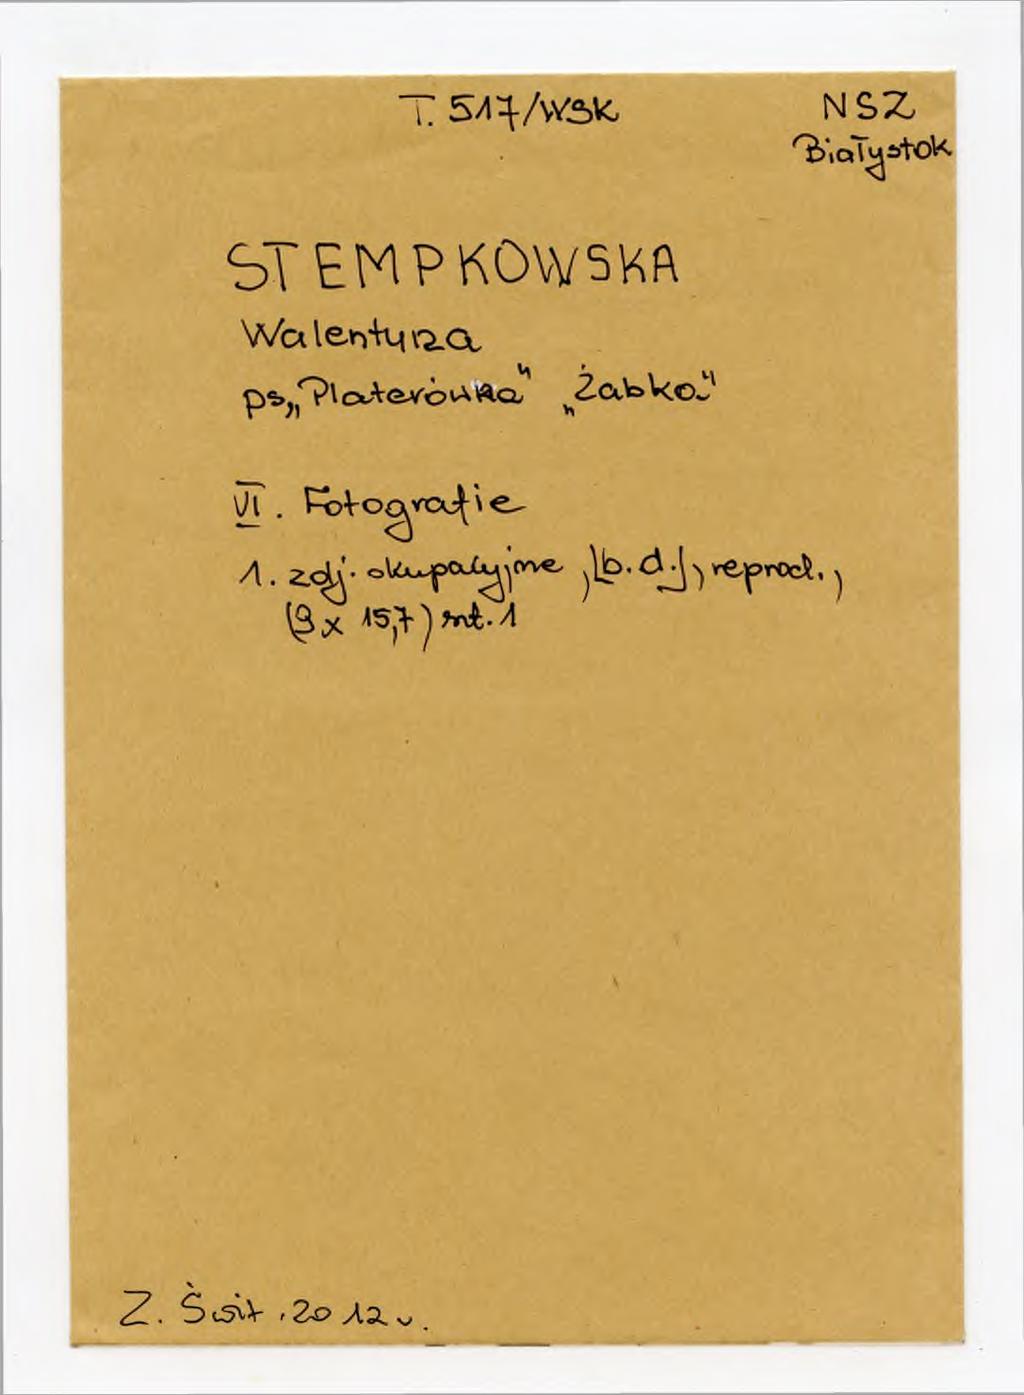 T. 517/WSK
NSZ
Białystok
STEMPKOWSKA
Walentyna
ps „Platerówka" „Żabka"
VI. Fotografie
1. zdj. okupacyjne, [b.d.], reprod.,
(9 x 15,7) szt. 1
Z. Świt. 2012 r.